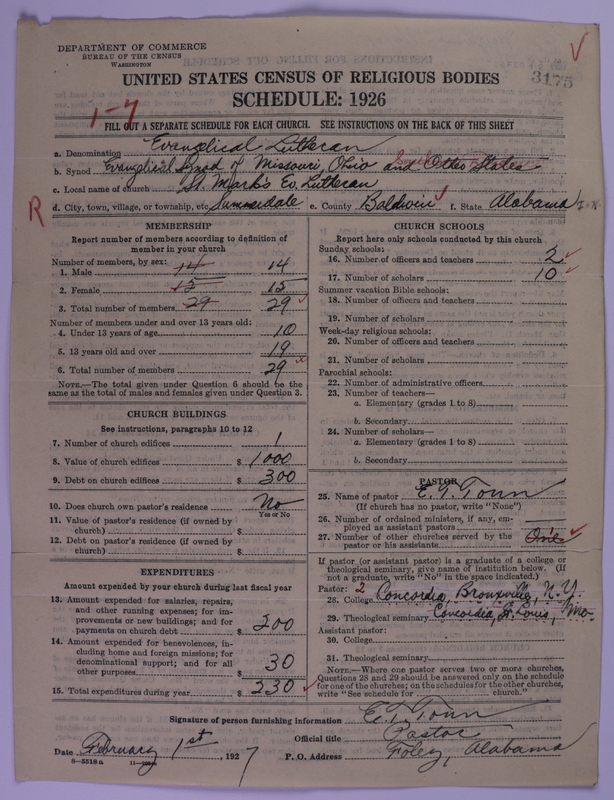 DEPARTMENT OF COMMERCE
BUREAU OF THE CENSUS
WASHINGTON
UNITED STATES CENSUS OF RELIGIOUS BODIES
3175
SCHEDULE: 1926
1-7
FILL OUT A SEPARATE SCHEDULE FOR EACH CHURCH. SEE INSTRUCTIONS ON THE BACK OF THIS SHEET
a. Denomination Evangelical Lutheran
b. Synod Evangelical Synod of Missouri, Ohio and Other States
c. Local name of church St. Mark's Ev. Lutheran
d. City, town, village, or township, etc. Summerdale e. County Baldwin f. State Alabama
R
MEMBERSHIP
Report number of members according to definition of
member in your church
Number of members, by sex:
1. Male 14 14
2. Female 15 15
3. Total number of members 29 29
Number of members under and over 13 years old:
4. Under 13 years of age 10
5. 13 years old and over 19
6. Total number of members 29
NOTE.—The total given under Question 6 should be the
same as the total of males and females given under Question 3.
CHURCH BUILDINGS
See instructions, paragraphs 10 to 12
7. Number of church edifices 1
8. Value of church edifices $ 1000
9. Debt on church edifices $ 300
10. Does church own pastor's residence No
Yes or No
11. Value of pastor's residence (if owned by
church) $
12. Debt on pastor's residence (if owned by
church) $
EXPENDITURES
Amount expended by your church during last fiscal year
13. Amount expended for salaries, repairs,
and other running expenses; for im-
provements or new buildings; and for
payments on church debt $ 200
14. Amount expended for benevolences, in-
cluding home and foreign missions; for
denominational support; and for all
other purposes $ 30
15. Total expenditures during year $ 230
CHURCH SCHOOLS
Report here only schools conducted by this church
Sunday schools:
16. Number of officers and teachers 2
17. Number of scholars 10
Summer vacation Bible schools:
18. Number of officers and teachers
19. Number of scholars
Week-day religious schools:
20. Number of officers and teachers
21. Number of scholars
Parochial schools:
22. Number of administrative officers
23. Number of teachers—
a. Elementary (grades 1 to 8)
b. Secondary
24. Number of scholars—
a. Elementary (grades 1 to 8)
b. Secondary
PASTOR
25. Name of pastor E. T. Tonn
(If church has no pastor, write "None")
26. Number of ordained ministers, if any, em-
ployed as assistant pastors
27. Number of other churches served by the
pastor or his assistants One
If pastor (or assistant pastor) is a graduate of a college or
theological seminary, give name of institution below. (If
not a graduate, write "No" in the space indicated.)
Pastor: 2
28. College Concordia, Bronxville, N.Y.
29. Theological seminary Concordia, St. Louis, Mo.
Assistant pastor:
30. College
31. Theological seminary
NOTE.—Where one pastor serves two or more churches,
Questions 28 and 29 should be answered only on the schedule
for one of the churches; on the schedules for the other churches,
write "See schedule for church."
Signature of person furnishing information E. T. Tonn
Official title Pastor
Date February 1st, 1927 P. O. Address Foley, Alabama
8—5518 a